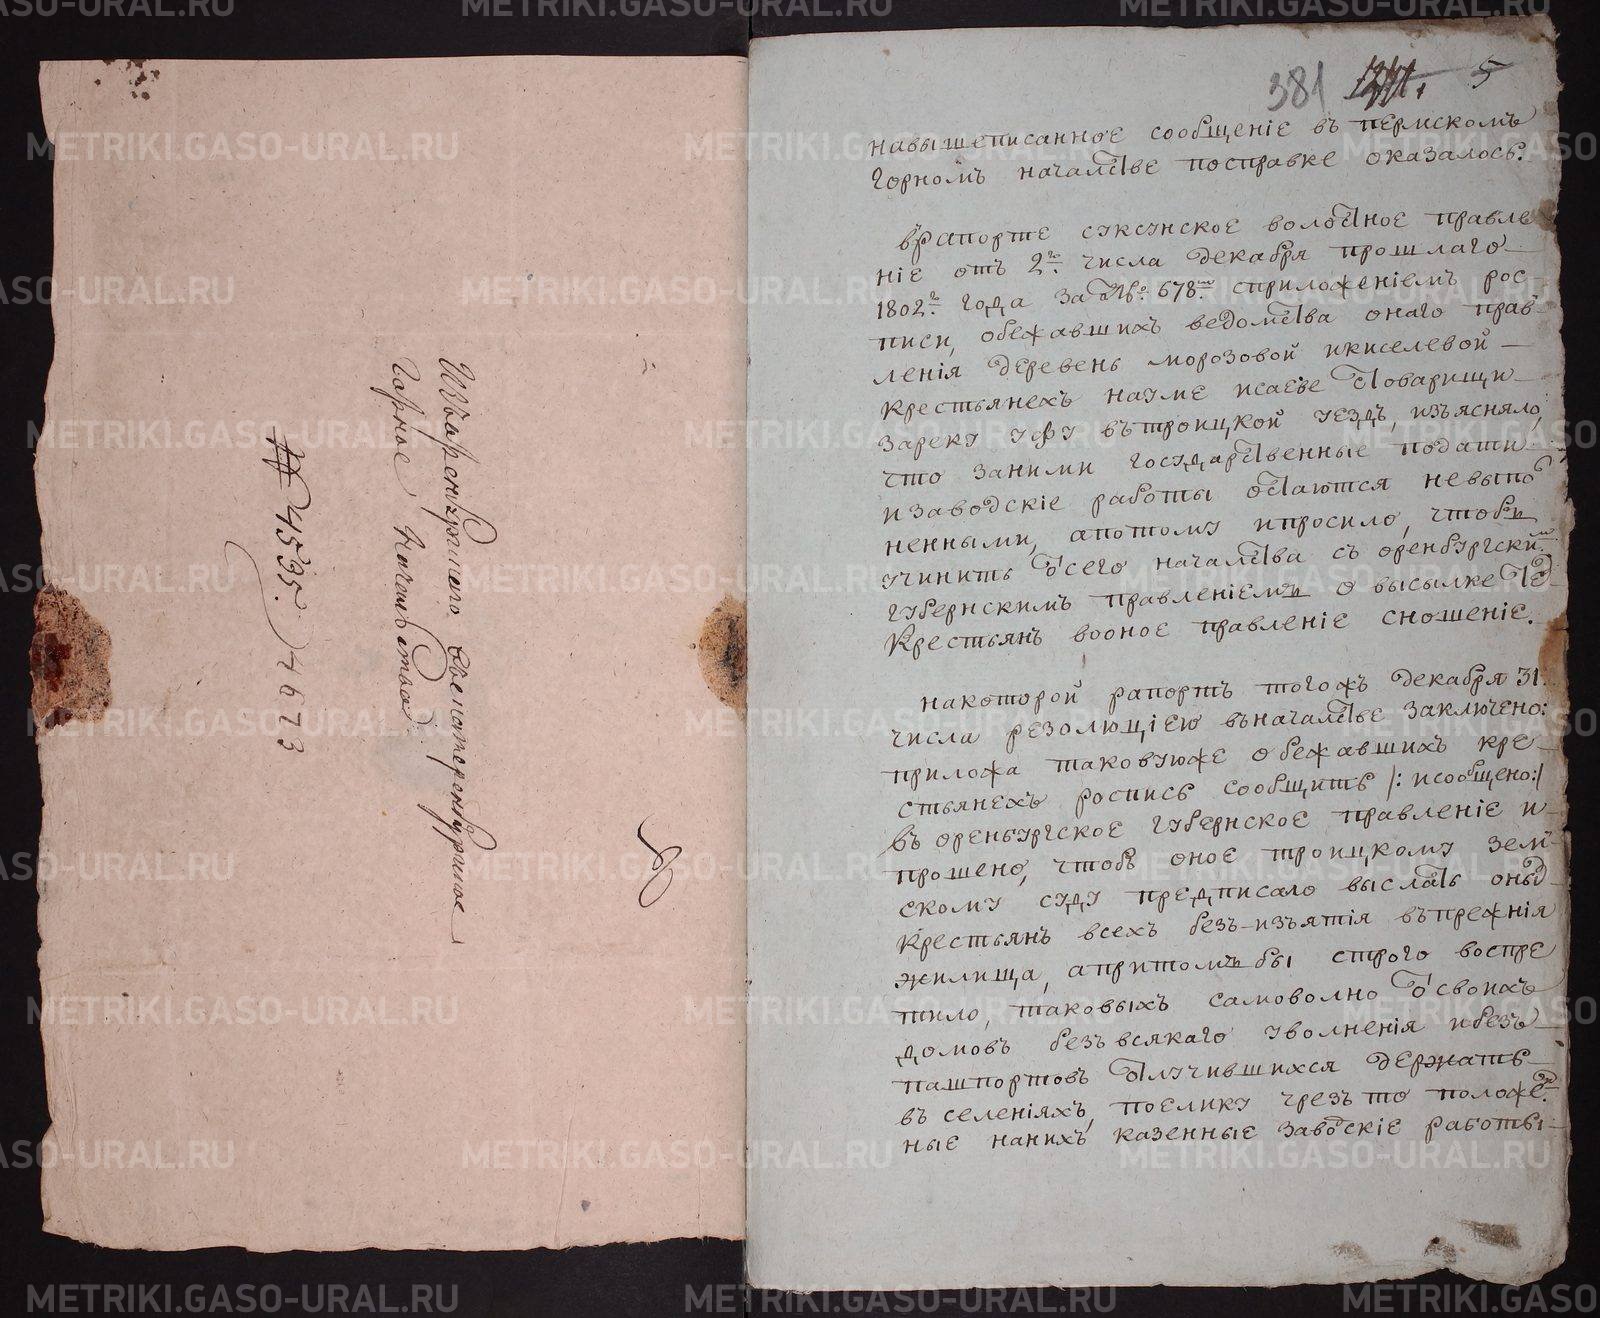 Изъ Оренбургскаго Екатеренбургское
Горное Начальство
№ 4535.
4673
381 5
на вышеписанное сообщеніе въ пермскомъ
горномъ началстве посправке оказалось.
врапорте суксунское волостное правле
ніе отъ 2го. числа декабря прошлаго
1802го. года за №о. 678мъ. сприложеніемъ рос
писи, обежавшихъ ведомства онаго прав
ленія деревень морозовой икиселевой
крестьянехъ науме исаеве стоварищи
зареку уфу въ троицкой уездъ, изъясняло,
что заними государственные подати
изаводскіе работы остаются невыпо
ненными, апотому ипросило, чтобъ
учинить отсего началства съ оренбургскимъ
губернскимъ правленіемъ о высылке техъ
крестьянъ вооное правленіе сношеніе.
накоторой рапортъ тогожъ декабря 31.
числа резолюціею въначалстве заключено:
приложа таковуюже обежавшихъ кре
стьянехъ роспись сообщить /: исообщено:/
въ оренбургское губернское правленіе и
прошено, чтобъ оное троицкому зем
скому суду предписало выслать оныхъ
крестьянъ всехъ безъ изъятія въпрежнія
жилища, апритомъ бы строго воспре
тило, таковыхъ самоволно отсвоихъ
домовъ безъ всякаго уволненія ибезъ
пашпортовъ отлучившихся держать
въ селеніяхъ, поелику чрезъ то положен
ные нанихъ казенные заводскіе работы